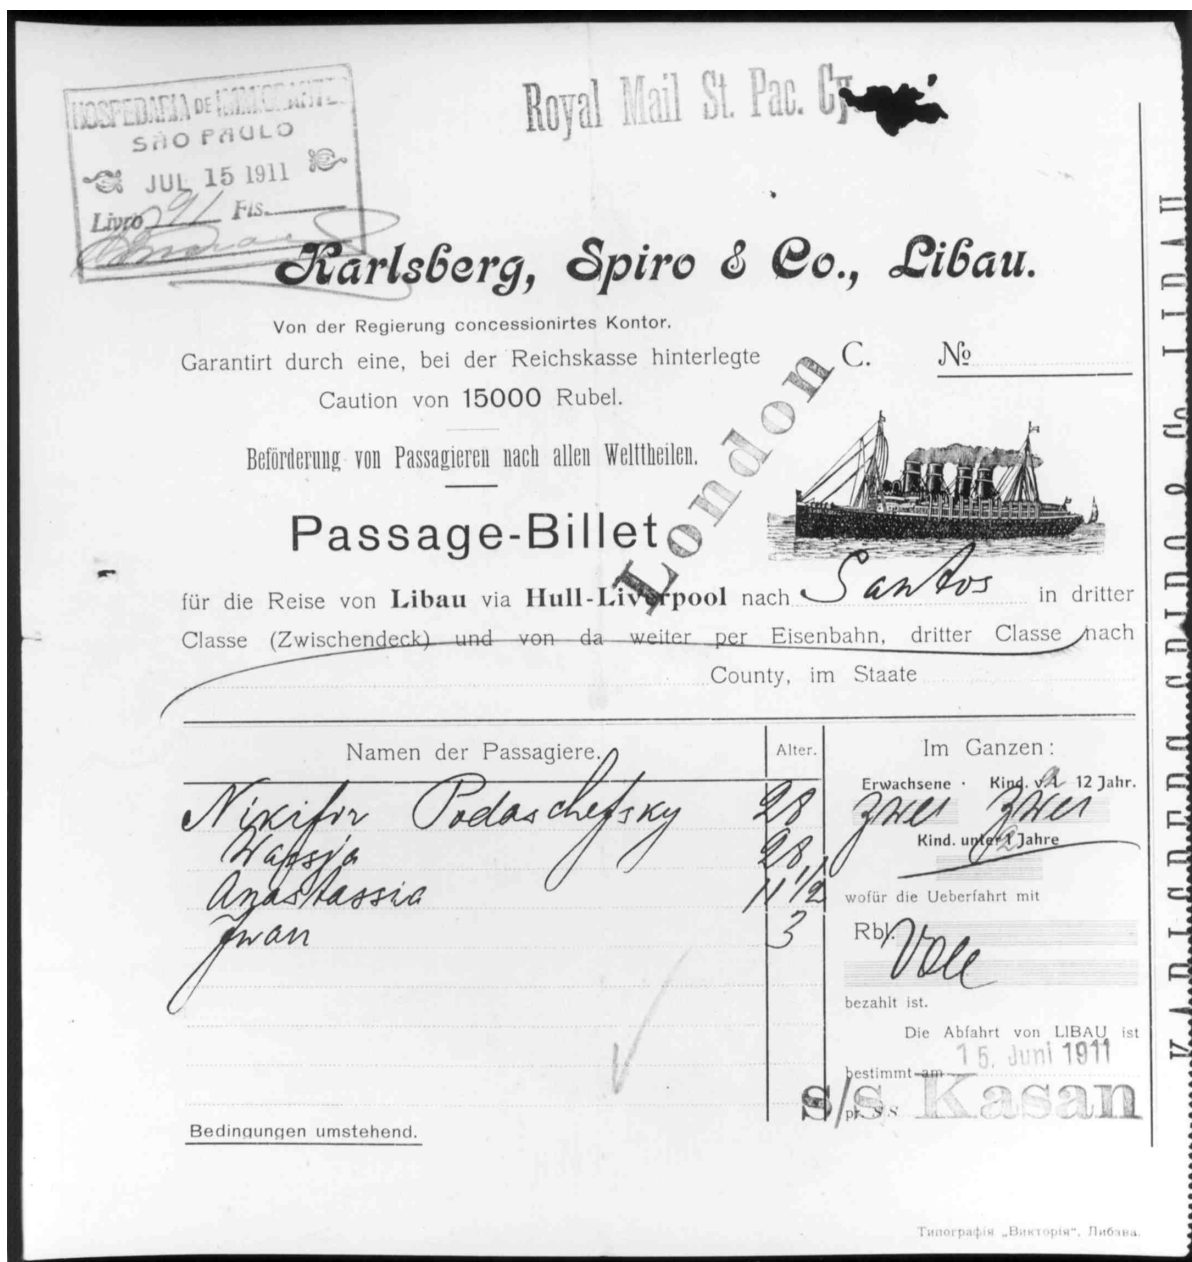 Royal Mail St. Pac. Cy.
HOSPEDARIA DE IMMIGRANTES
SÃO PAULO
JUL 15 1911
Livro 91 Fls.
Karlsberg, Spiro & Co., Libau.
Von der Regierung concessionirtes Kontor.
Garantirt durch eine, bei der Reichskasse hinterlegte
Caution von 15000 Rubel.
C. No
Beförderung von Passagieren nach allen Welttheilen.
London
Passage-Billet
für die Reise von Libau via Hull-Liverpool nach Santos in dritter
Classe (Zwischendeck) und von da weiter per Eisenbahn, dritter Classe nach
County, im Staate
Namen der Passagiere. Alter.
Nikifir Podaschefsky 28
Wassja 28
Anastassia 11 1/2
Iwan 3
Im Ganzen:
Erwachsene Kind. v. 1 12 Jahr.
zwei zwei
Kind. unter 1 Jahre
wofür die Ueberfahrt mit
Rbl. Voll
bezahlt ist.
Die Abfahrt von LIBAU ist
bestimmt am 15. Juni 1911
pr. S/S s/s Kasan
Bedingungen umstehend.
Типографія „Викторія“, Либава.